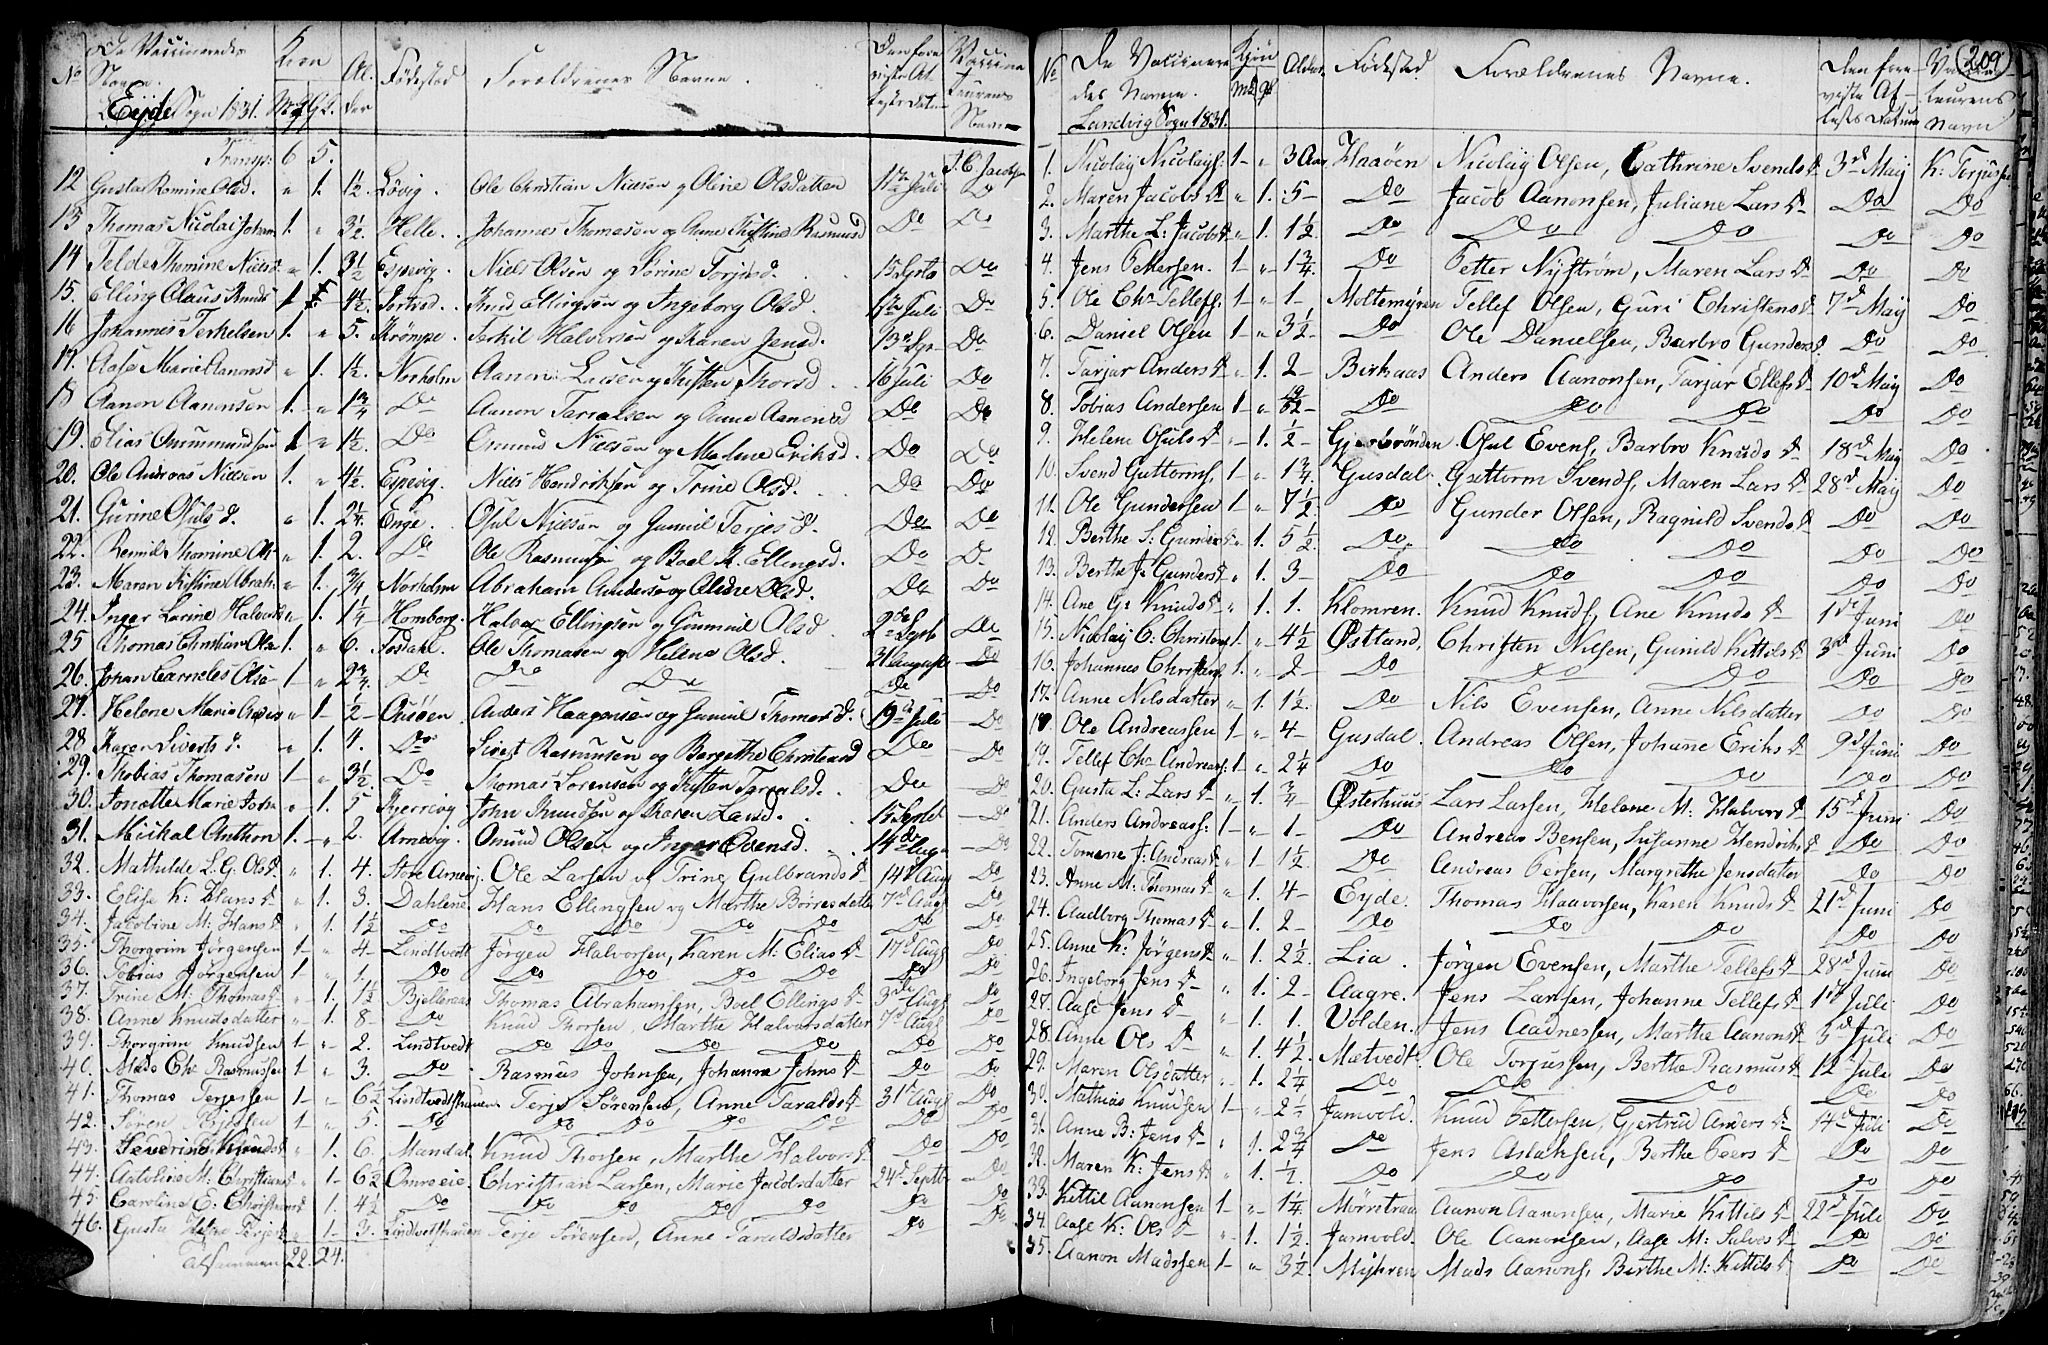 No De Vaccineredes Navne. Kiøn Al- Fødested Forældrenes Navne. Den fore- Vaccina-
viiste At- teurens
Eyde Sogn 1831. Mk Qk. der testes Datum Navn
Transp: 6 5. J. C. Jacobsen
12 Gusta Romine Olsd. " 1. 1½. Løvig. Ole Christian Nielsen og Oline Olsdatter 17de Juli Do
13 Thomas Nicolai Johan 1. " 3½ Helle. Johannes Thomasen og Anne Kistine Rasmusd Do Do
14 Telde Thomine Nielsd. " 1. 3½ Espevig. Niels Olsen og Sørine Torjusd. 15 Septb Do
15. Elling Claus Knuds 1. 4½. Knud Ellingsen og Ingeborg Olsd. 17de Juli Do
16 Johannes Terkelsen 1. " 5. Strømpe. Terkil Halvorsen og Karen Jensd. 13de Spt Do
17. Aase Marie Aanonsd " 1. 1½. Norholm Aanon Larsen og Kisten Thorsd 16 Juli Do
18 Aanon Aanonsen 1. " 1¾ Do Aanon Tarralsen og Anne Aanonsd Do Do
19. Elias Omundsen " 1½. Do Omund Nielsen og Malene Eriksd. Do Do
20. Ole Andreas Nielsen 1. " 4½. Espevig. Niels Hendriksen og Trine Olsd. Do Do
21. Gurine Osuls d. " 1. 2¼. Enge. Osul Nielsen og Gunnild Terjes d. Do Do
22. Romil Thomine Ols " 1. 2. Do Ole Rasmusen og Boel K. Ellingsd. Do Do
23. Maren Kistine Abrah. " 1. ¾ Norholm Abraham Andersen og Olidne Olsd. Do Do
24. Inger Larine Halvorsd " 1. 1¼ Homborg. Halvor Ellingsen og Gunnild Olsd. 2de Septb Do
25 Thomas Christian Ols 1. " 6. Fosdahl. Ole Thomasen og Helene Olsd. 31 August Do
26. Johan Carneles Olse 1- " 2¾. Do Do Do Do Do
27. Helene Maria Anders " 1- 2- Ousøen Anders Haagensen og Gunnil Thomasd. 19de Juli Do
28. Karen Siverts d. " 1. 4. Do Sivert Rasmusen og Bergethe Christiansd Do Do
29. Thobias Thomasen 1- " 3½. Do Thomas Sørensen og Kisten Tarralsd. Do Do
30. Jonette Marie Johns " 1. 5. Kjerrevig John Knudsen og Karen Larsd. 15 Septb Do
31. Mickal Anthon 1. " 2. Arnevig. Omund Olsen og Inger Evensd. 14de Aug Do
32. Mathilde L. G. Olsd. " 1. 4. Store Arnevig. Ole Larsen og Trine Gulbrands D. 14d Aug Do
33. Elise K: Hans D. " 1. 3. Dahlene. Hans Ellingsen og Marthe Børresdatter 7d Aug Do
34. Jacobine M: Hans D. " 1. 1½ Do Do Do Do Do Do Do
35. Thorgrim Jørgensen 1- " 4- Lindtvedt Jørgen Halvorsen, Karen M: Elias D. 17d Augs Do
36. Tobias Jørgensen 1 " 1. Do Do Do Do Do Do Do
37. Trine M: Thomas D. " 1. 1½ Bjelleraas Thomas Abrahamsen, Boel Ellings D. 3die Augs Do
38. Anne Knudsdatter " 1. 8- Do Knud Thorsen, Marthe Halvorsdatter 7d Augs Do
39. Thorgrim Knudsen 1- " 2. Lindtvedt Do Do Do Do Do Do
40. Mads Chr. Rasmussen 1 " 3. Do Rasmus Johnsen, Johanne Johns D. Do Do
41. Thomas Terjessen 1- " 6½ Lindtvedthauen Terje Sørensen, Anne Taralds D. 31d Augs Do
42. Søren Terjessen 1 " 5. Do Do Do Do Do Do Do
43. Severine Knuds D. " 1. 6. Mandal. Knud Thorsen, Marthe Halvors D. Do Do
44. M. Christians D. " 1- 6½ Omreie. Christian Larsen, Marie Jacobsdatter 24d Septb Do
45. Caroline E. Christians D. " 1. 4½ Do Do Do Do Do Do Do
46. Gusta Terjes " 1- 3. Lindtvedthauen Terje Sørensen, Anne Taraldsdatter Do Do
Alsammen 22. 24.
209
No De Vaccinere- Kjøn Alder Fødested Forældrenes Navne. Den fore- Vaccina-
des Navne. Mk Qk viste At- teurens
Landvig Sogn 1831. tests Datum Navn
1. Nicolay Nicolays: 1- " 3 Aar Haaøen Nicolay Olsen, Cathrine Svends D. 3d May K: Terjussen
2. Maren Jacobs D. " 1. 5- Do Jacob Aanonsen, Juliane Lars D- Do Do
3. Marthe L: Jacobs D. " 1. 1½ Do Do Do Do Do
4. Jens Pettersen. 1- " 1¾ Do Petter Nystrøm, Maren Lars D- Do Do
5. Ole Chr Tellefs. 1- " 1- Moltemyren Tellef Olsen, Guri Christens D. 7d May Do
6. Daniel Olsen 1- " 3½ Do Ole Danielsen, Barbro Gunders D. Do Do
7. Tarjar Anders D- " 1. 2- Birkaas Anders Aanonsen, Tarjar Ellefs D- 10d May Do
8. Tobias Andersen 1- " Do Do Do Do Do
9. Helene Osuls D- " 1. ½- Gjærbrønden Osul Evens, Barbro Knuds D- 18d May Do
10. Svend Guttorms. 1- " 1¾. Gusdal. Guttorm Svends, Maren Lars D- 28d May Do
11. Ole Gundersen 1- " 7½. Do Gunder Olsen, Ragnild Svends D Do Do
12. Berthe S: Gunders D. " 1. 5½. Do Do Do Do Do
13. Berthe J: Gunders D. " 1. 3- Do Do Do Do Do
14. Ane G: Knuds D. " 1. 1. Klomren. Knud Knuds, Ane Knuds D- 1de Juni Do
15. Nicolay C: Christens 1- " 4½ Østland. Christen Nilsen, Gunild Kittils D. 3d Juni Do
16. Johannes Christens 1. " 2- Do Do Do Do Do
17. Anne Nilsdatter " 1. 1½. Do Nils Evensen, Anne Nilsdatter Do Do
18. Ole Andreassen 1- " 4- Gusdal. Andreas Olsen, Johane Eriks D- 9d Juni Do
19. Tellef Chr Andreas: 1- " 2¼ Do Do Do Do Do
20. Gusta L: Lars D- " 1. ¾ Østerhuus Lars Larsen, Helene M: Halvors D- 15d Juni Do
21. Anders Andreass: 1- " 1- Do Andreas Bensen, Susanne Hendriks D. Do Do
22. Tomene J: Andreas D. " 1- 1½ Do Andreas Persen, Margrethe Jensdatter Do Do
23. Anne M: Thomas D- " 1. 4- Eyde. Thomas Haavorsen, Karen Knuds D- 21d Juni Do
24. Aadborg Thomas D- " 1. 2- Do Do Do Do Do
25. Anne K: Jørgens D. " 1. 2½. Lia. Jörgen Evensen, Marthe Tellefs D- 28d Juni Do
26. Ingeborg Jens D- " 1. 2- Aagre. Jens Larssen, Johanne Tellefs D- 1de Juli Do
27. Aase Jens D- " 1. 1. Volden. Jens Aadnessen, Marthe Aanons D- 3d Juli Do
28. Anne Ols D- " 1. 4½. Mætvedt. Ole Torjussen, Berthe Rasmus D- 12d Juli Do
29. Maren Olsdatter " 1. 2¼ Do Do Do Do Do
30. Mathias Knudsen 1- " 2½ Jamvold. Knud Pettersen, Gjertrud Anders D- 14d Juli Do
31. Anne B: Jens D- " 1. 2¾ Do Jens Aslaksen, Berthe Peers D- Do Do
32. Maren K: Jens D. " 1- ½. Do Do Do Do Do
33. Kittil Aanonsen 1- " 1¼ Mørretraa Aanon Aanonsen, Marie Kittils D- 22d Juli Do
34. Aase K: Ols D- " 1. 1½. Jamvold. Ole Aanonsen, Aase M: Salves D- Do Do
35. Aanon Madssen 1- " 3½. Myhren Mads Aanons, Berthe M: Kittils D- Do Do